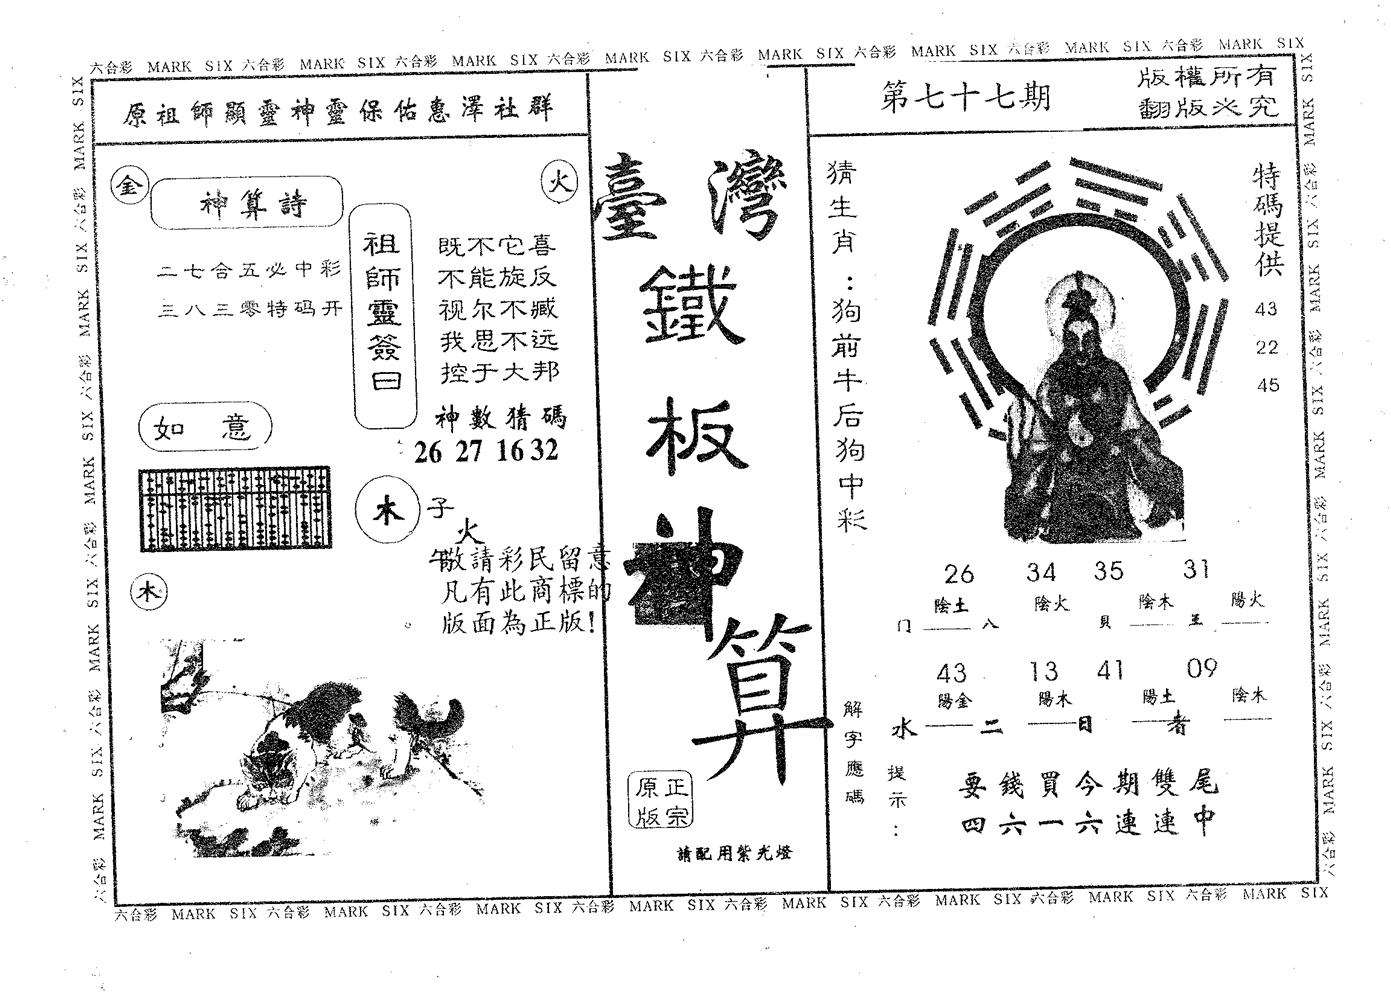 六合彩 MARK SIX 六合彩 MARK SIX 六合彩 MARK SIX 六合彩 MARK SIX 六合彩 MARK SIX 六合彩 MARK SIX 六合彩 MARK SIX 六合彩 MARK SIX
原祖師顯靈神靈保佑惠澤社群
金
神算詩
火
二七合五必中彩
三八三零特码开
祖師靈簽曰
既不它喜
不能旋反
视尔不臧
我思不远
控于大邦
神數猜碼
26 27 16 32
如意
木
子
火
午
敬請彩民留意
凡有此商標的
版面為正版!
木
臺灣
鐵
板
神
算
正宗
原版
請配用紫光燈
第七十七期
版權所有
翻版必究
猜生肖:狗前牛后狗中彩
特碼提供
43
22
45
26 34 35 31
陰土 陰火 陰木 陽火
门 八 貝 王
43 13 41 09
陽金 陽木 陽土 陰木
水 二 日 者
解字應碼
提示:
要錢買今期雙尾
四六一六連連中
六合彩 MARK SIX 六合彩 MARK SIX 六合彩 MARK SIX 六合彩 MARK SIX 六合彩 MARK SIX 六合彩 MARK SIX 六合彩 MARK SIX 六合彩 MARK SIX
六合彩 MARK SIX 六合彩 MARK SIX 六合彩 MARK SIX 六合彩 MARK SIX 六合彩 MARK SIX
六合彩 MARK SIX 六合彩 MARK SIX 六合彩 MARK SIX 六合彩 MARK SIX 六合彩 MARK SIX